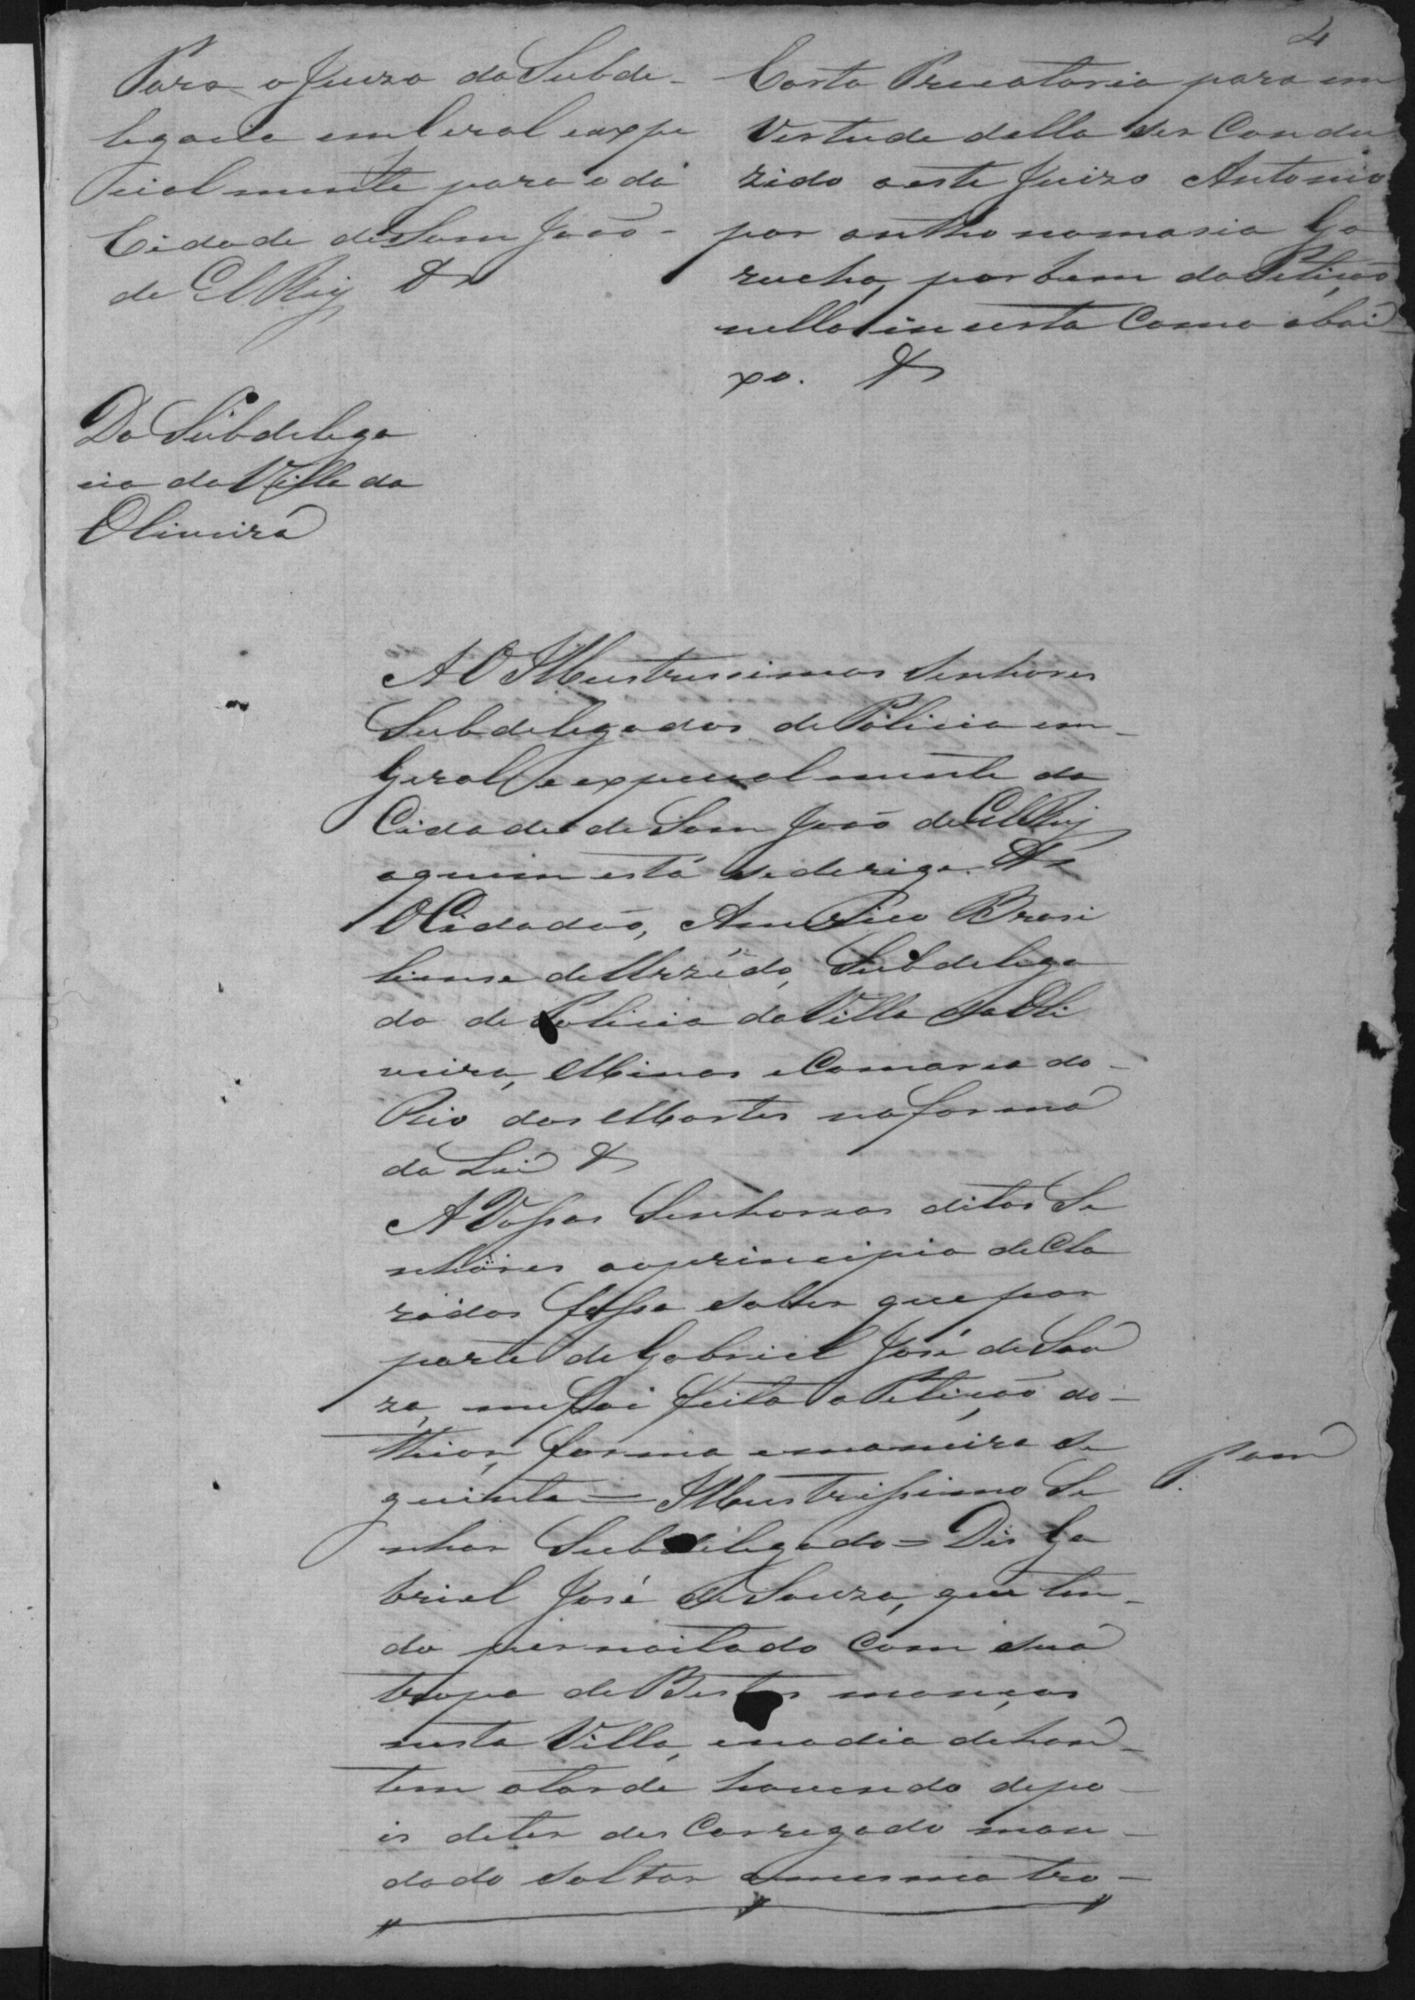 4
Para o Juizo da Subde-
legacia em Geral e expe
cialmente para o da
Cidade de Sam João
de El Rey &
Carta Precatoria para em
Vertude della ser Condu
zido a este Juizo Antonio
por anthonomasia Ga
rucha, por bem da Petição
nella inserta Como abai
xo. &
Da Subdelega
cia da Villa da
Oliveira
AO Illustrissimos Senhores
Subdelegados de Policia em
Geral e expecialmente da
Cidade de Sam João de El Rey
aquem esta se derige. &
O Cidadão, Americo Brasi
liense de Urzedo, Subdelega
do de Policia da Villa da Oli
veira, Minas e Comarca do
Rio das Mortes na forma
da Lei &
A Vossas Senhorias ditos Se
nhores ao principio decla
rados fasso saber que por
parte de Gabriel José de Sou
za, me foi feita a Petição do
thior, forma e maneira se
guinte = Illustrissimo Se
nhor Subdelegado = Dis Ga
briel José de Souza, que ten-
do pernoitado Com sua
tropa de Bestas manças
nesta Villa, e no dia de hon-
tem a tarde havendo depo-
is de ter des Carregado man-
dado soltar a mesma tro-